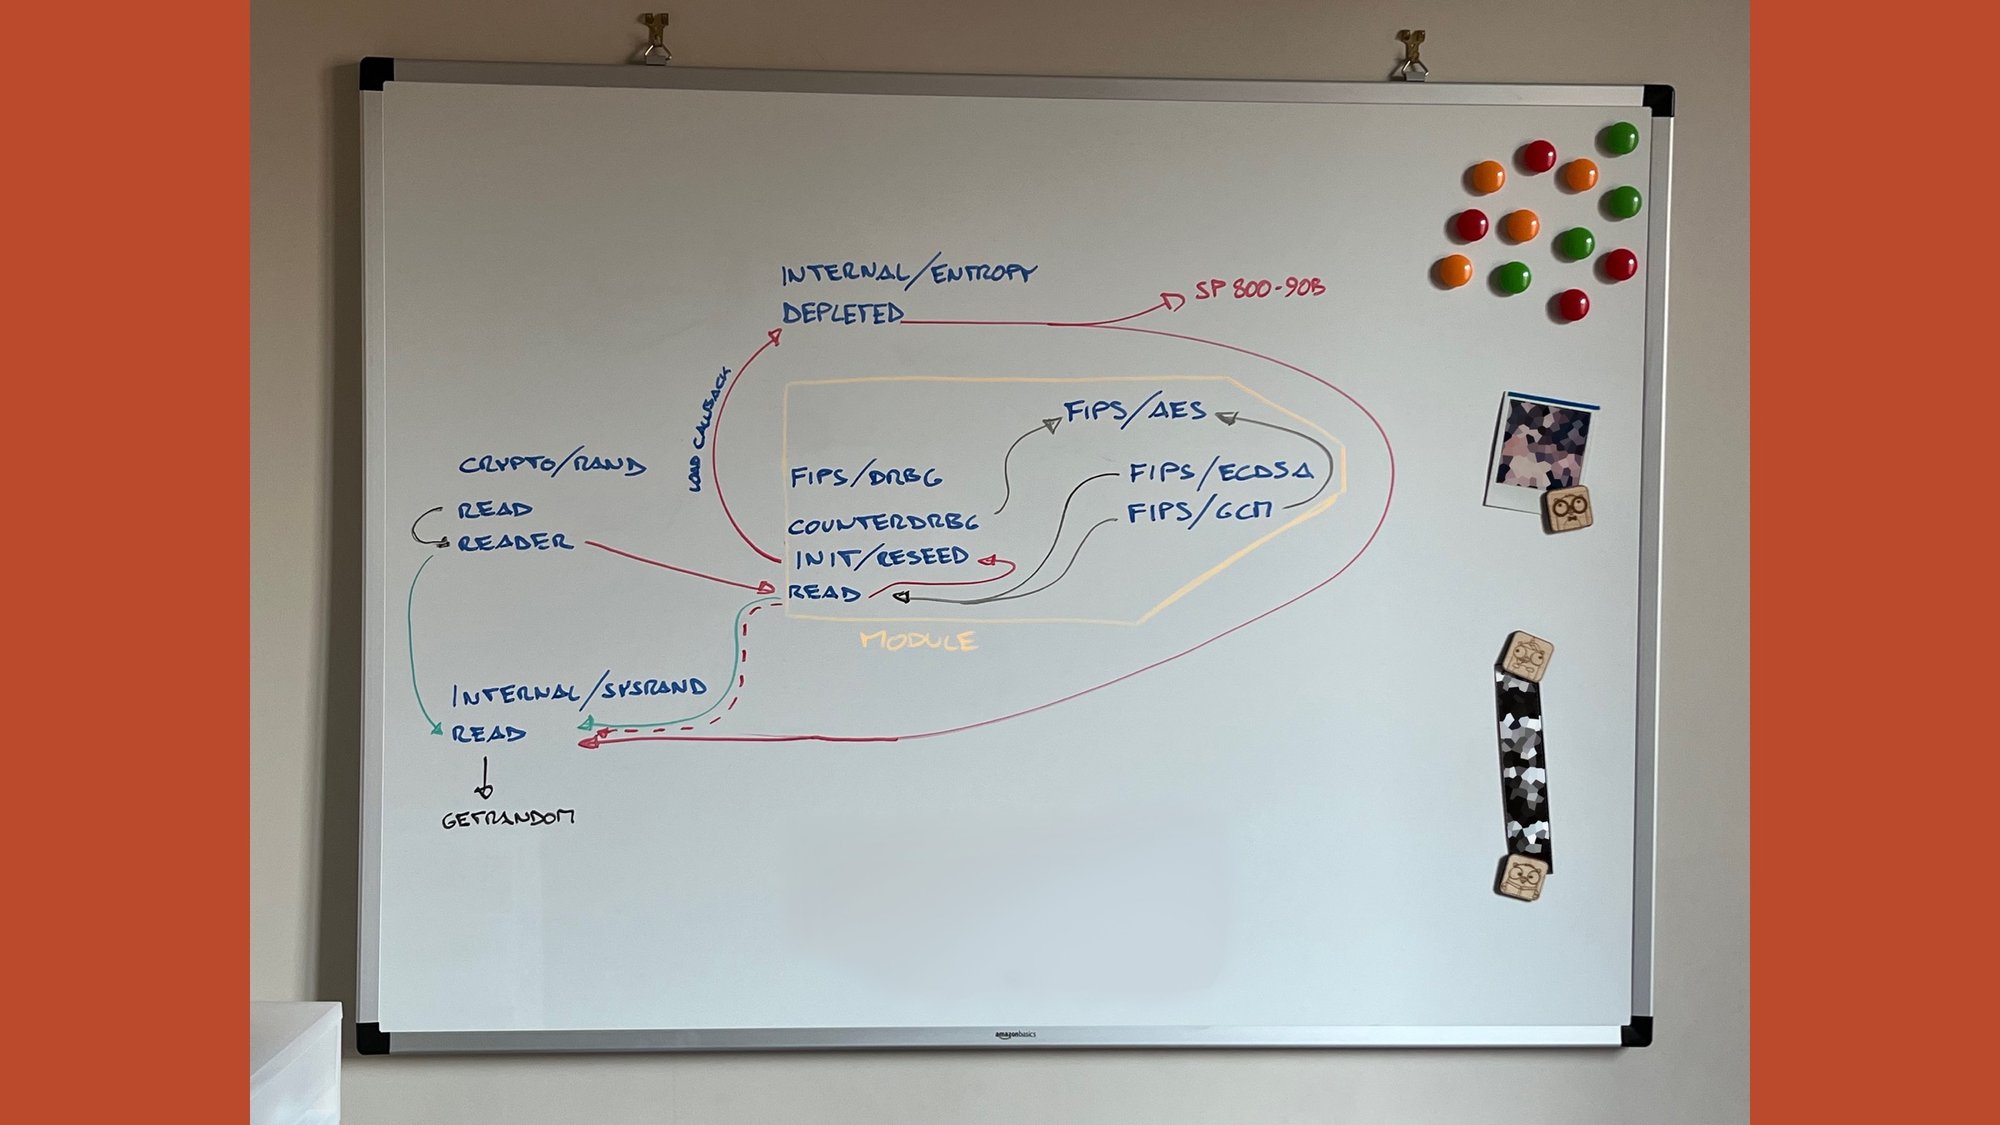 INTERNAL/ENTROPY
DEPLETED
SP 800-90B
LOAD CALLBACK
FIPS/AES
CRYPTO/RAND
READ
READER
FIPS/DRBG
COUNTERDRBG
INIT/RESEED
READ
FIPS/ECDSA
FIPS/GCM
MODULE
INTERNAL/SYSRAND
READ
GETRANDOM
amazonbasics